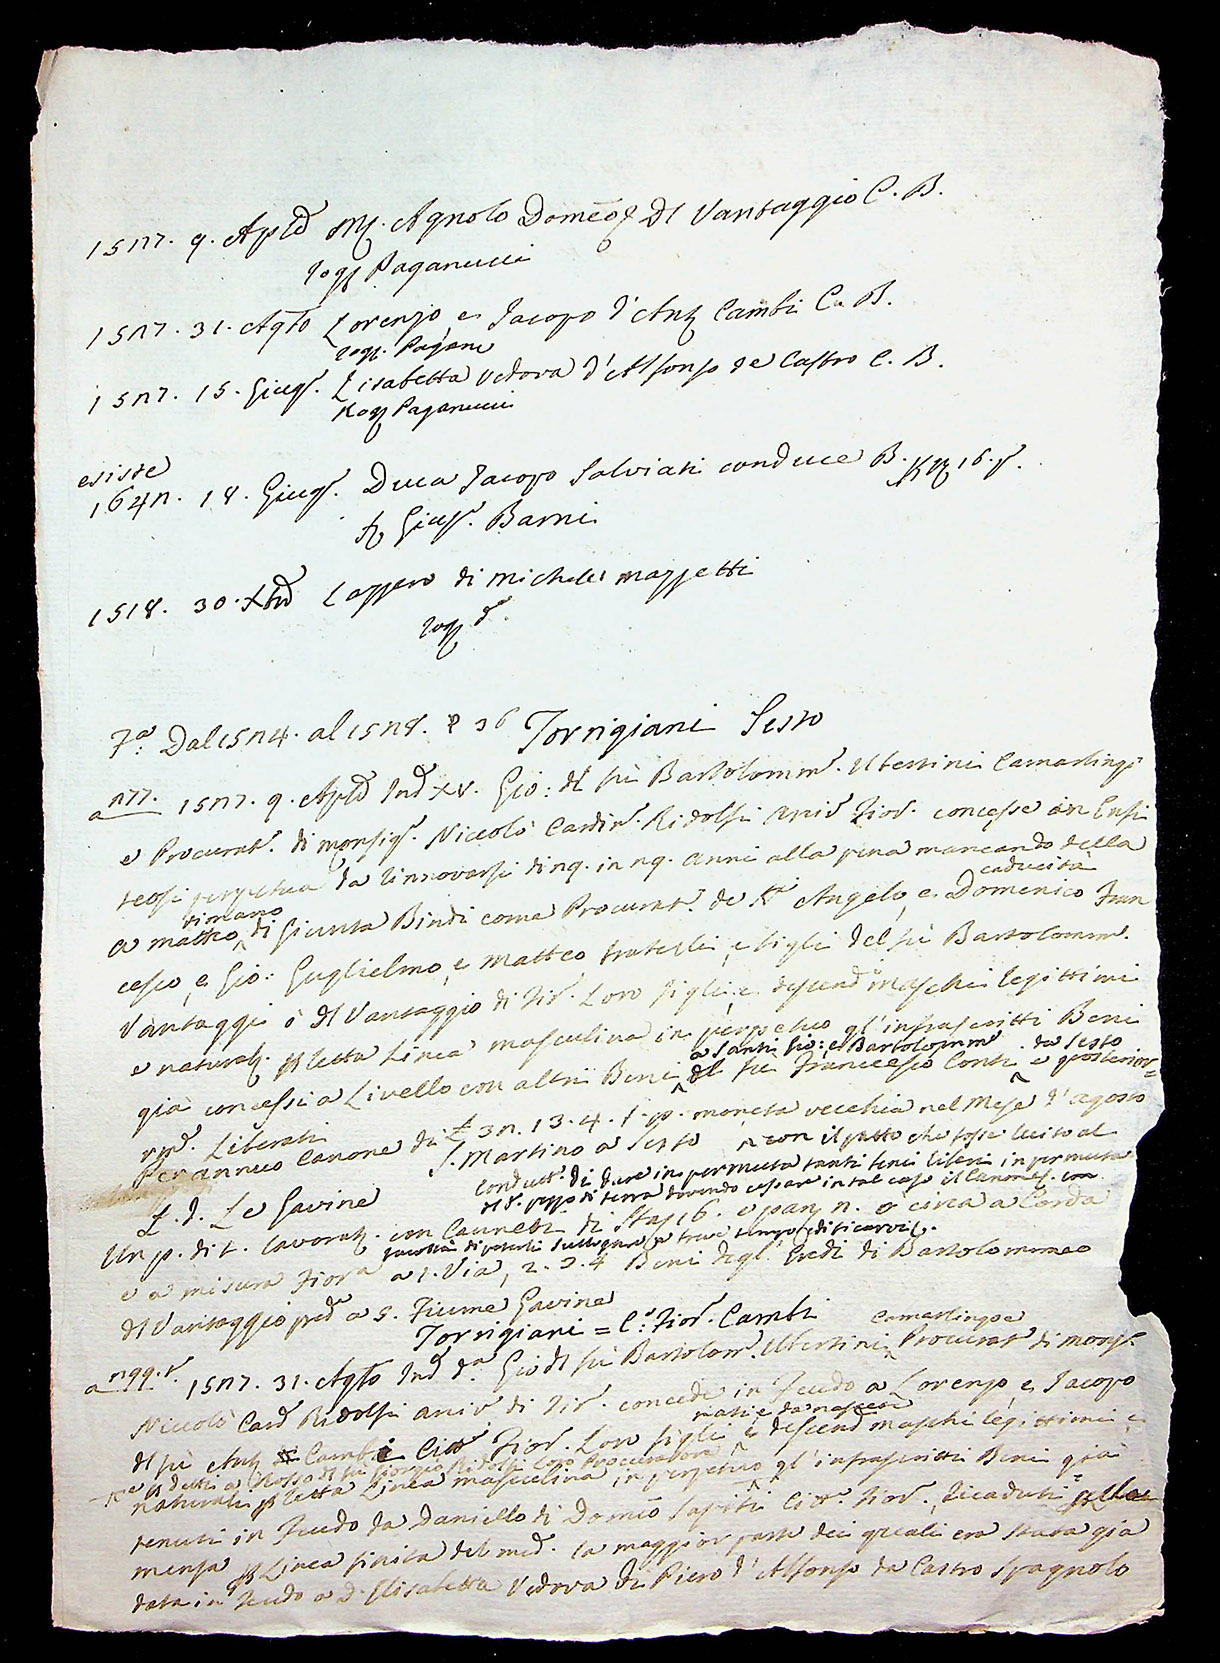 1527. 9. Aple M. Agnolo Domeco Dl Vantaggio C. B.
Rogg Paganucci
1527. 31. Agto Lorenzo e Jacopo d'Ant Cambi C. B.
Rogg. Pagan
1527. 15. Giug. Lisabetta Vedova d'Alfonso de Castro C. B.
Rog Paganucci
esiste
1642. 18. Giug. Duca Jacopo Salviati conduce B. 16.
Gius. Barni
1518. 30. Xbre Lazzero di Michele Mazzetti
Rogg d.
7a: Dal 1524. al 1528. 36 Torrigiani Sesto
a 277. 1527. 9. Aple Ind XV. Gio: dl fù Bartolomm. Ubertini Camarlingo
e Procurat. di Monsig. Niccolò Cardin. Ridolfi Fior. concesse in Enfi
teosi perpetua da rinnovarsi di 29. in 29. anni alla pena mancando della
caducità
a Matteo di Giunta Bindi come Procurat. de Angelo, e Domenico Fran
rimano
cesco, e Gio: Guglielmo, e Matteo fratelli, e figli del fù Bartolomm.
Vantaggi ò dl Vantaggio di Fir. Loro figli, e descend maschi legittimi
e naturali letta Linea masculina in perpetuo gl'infrascritti Beni
a Santi Gio: e Bartolomm da Sesto
già concessi a Livello con altri Beni dl fù Francesco Conti e posterior=
Liberati
Per annuo Canone di £ 32. 13. 4. f. p. moneta vecchia nel Mese d'Agosto
S. Martino a Sesto con il patto che fosse lecito al
Condutt. di dare in permuta tanti beni liberi in permuta
dl d. pezzo di terra dovendo cessare in tal caso il Canone
L. d. Le Gavine
Un p. di t. lavorat. con Canneti di Staj 16. e pan 2. o circa a Corda
e a misura Fiora a 1. Via, 2. 3. 4 Beni degl' Eredi di Bartolommeo
dl Vantaggio pred a 5. Fiume Gavine
Torrigiani = C. Fior. Cambi
Camarlingo e
a 299. 1527. 31. Agto Ind d.a Gio dl fù Bartolom. Ubertini Procurat di Mons.
Niccolò Card Ridolfi di Fir. concede in Feudo a Lorenzo e Jacopo
nati e da nascere
dl fù Ant Cambi Citt Fior. Loro figli e descend maschi legittimi e
e detti a Rosso dl fù Giorgio Ridolfi loro Procuratore
naturali letta Linea masculina in perpetuo gl'infrascritti Beni già
tenuti in Feudo da Daniello di Domco Sapiti Citt. Fior. ricaduti alla
mensa Linea finita del med. la maggior parte dei quali era stata già
data in Feudo a D. Elisabetta Vedova di Piero d'Alfonso da Castro Spagnolo